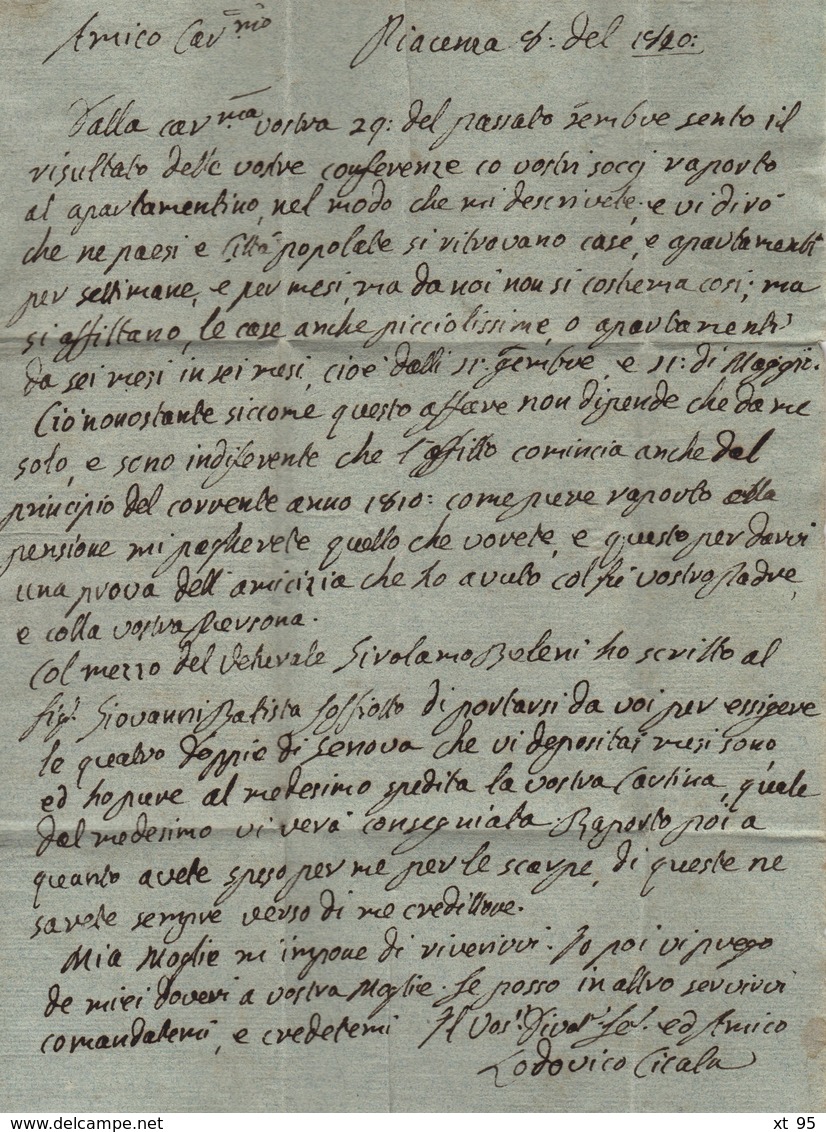 Amico Car.mo Piacenza 8: del 1810:
Dalla car.ma vostra 29: del passato Xembre sento il
risultato delle vostre conferenze co vostri soccj raporto
al apartamentino, nel modo che mi descrivete, e vi dirò
che ne paesi e Città popolate si ritrovano case, e apartamenti
per settimane, e per mesi, ma da noi non si costuma cosi; ma
si affittano, le case anche picciolissime, o apartamenti
da sei mesi in sei mesi, cioè dalli 11: 9embre, e 11: di Maggio.
Ciò nonostante siccome questo affare non dipende che da me
solo, e sono indiferente che l'affitto comincia anche dal
principio del corrente anno 1810: come pure raporto alla
pensione mi pagherete quello che vorete, e questo per darvi
una prova dell'amicizia che ho avuto col fù vostro Padre,
e colla vostra Persona.
Col mezzo del Veturale Girolamo Boleni ho scritto al
Sig.r Giovanni Batista Soffiotto di portarsi da voi per essigere
le quatro doppie di Genova che vi depositai mesi sono
ed ho pure al medesimo spedita la vostra Cartina, quale
dal medesimo vi verà consegniata. Raporto poi a
quanto avete speso per me per le scarpe, di queste ne
sarete sempre verso di me creditore.
Mia Moglie m'impone di riverirvi. Io poi vi prego
de miei doveri a vostra Moglie. Se posso in altro servirvi
comandatemi, e credetemi Il Vos.o Divot. Se.r ed Amico
Lodovico Cicala
www.delcampe.net xt_95